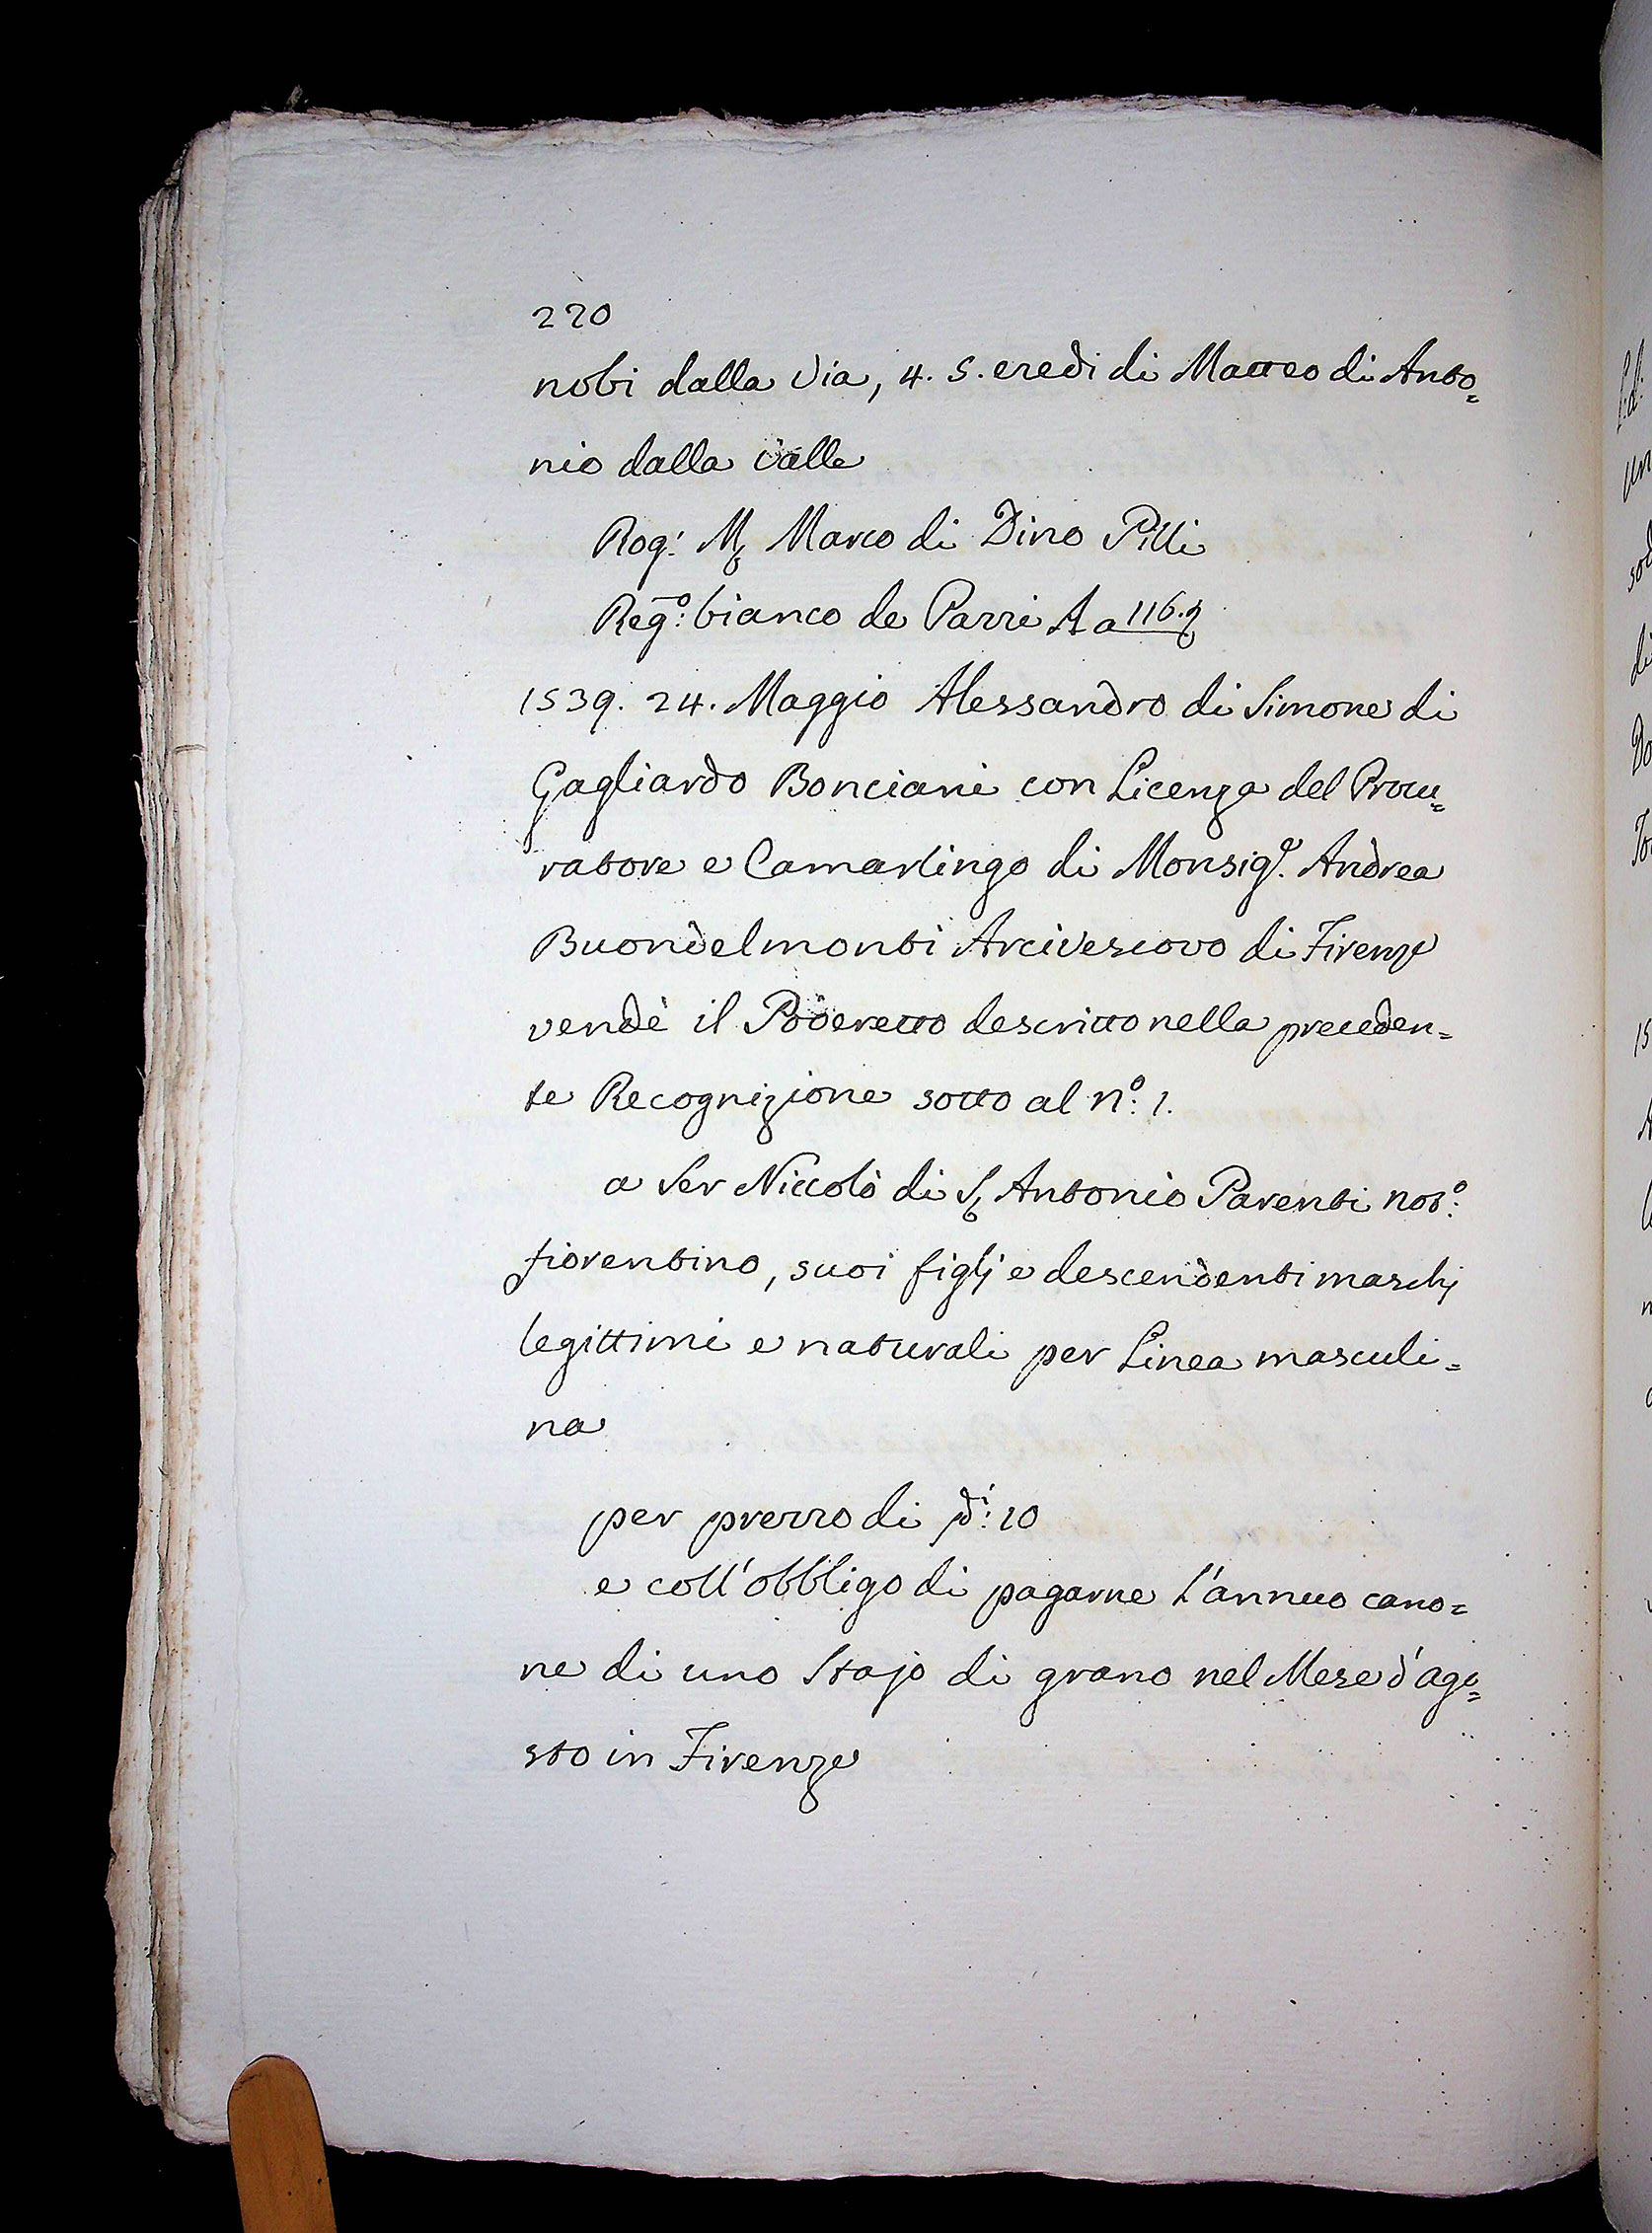 220
nobi dalla Via, 4. 5. eredi di Matteo di Anto=
nio dalla Valle
Rog: M Marco di Dino Pilli
Reg.º: bianco de Parri A a 116.
1539. 24. Maggio Alessandro di Simone di
Gagliardo Bonciani con Licenza del Procu=
ratore e Camarlingo di Monsig.r Andrea
Buondelmonti Arcivescovo di Firenze
vendè il Poderetto descritto nella preceden=
te Recognizione sotto al n.º: 1.
a Ser Niccolò di S Antonio Parenti not.º:
fiorentino, suoi figlj e descendenti maschj
legittimi e naturali per Linea masculi=
na
per prezzo di di: 10
e coll'obbligo di pagarne l'annuo cano=
ne di uno Stajo di grano nel Mese d'ago=
sto in Firenze